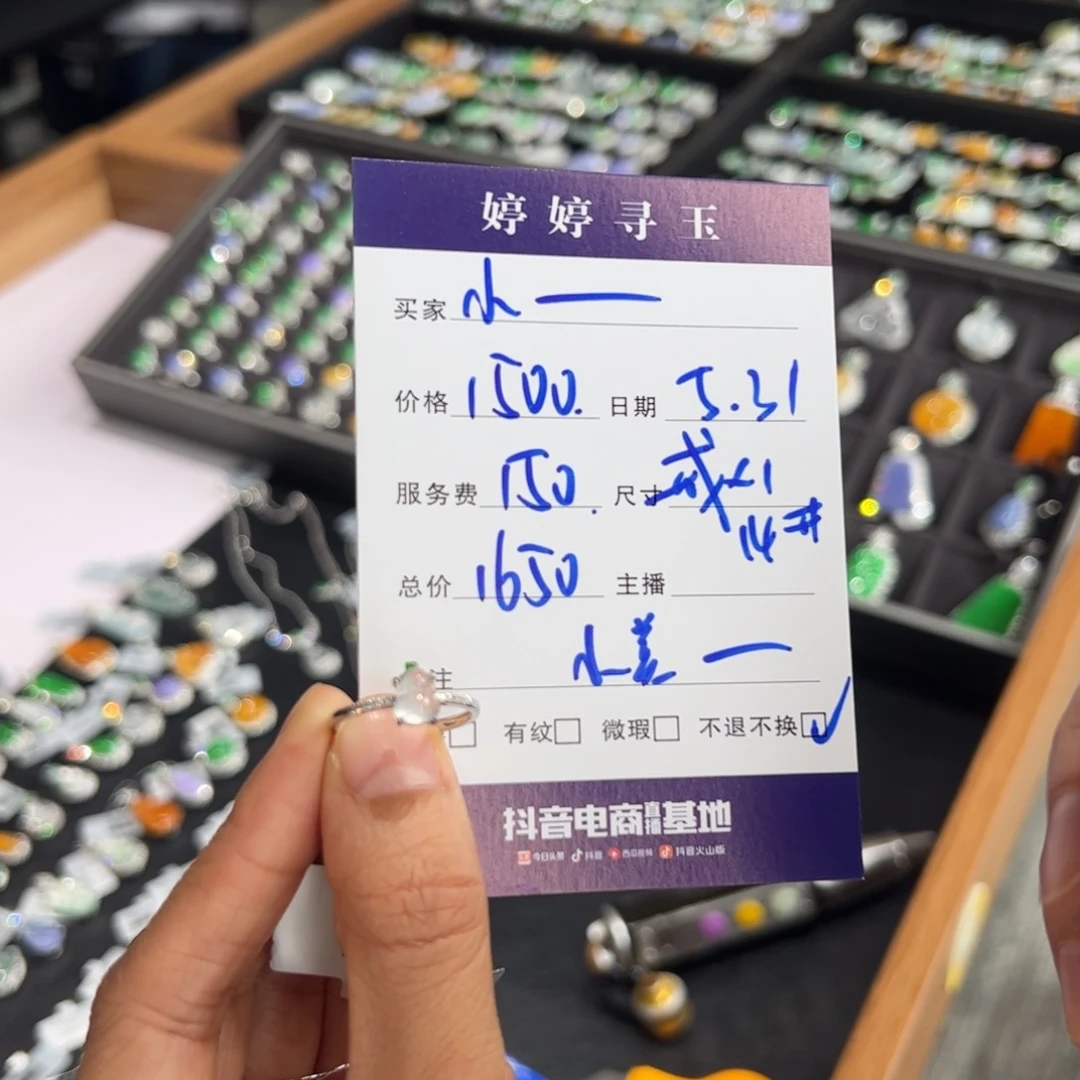 婷婷寻玉
买家 水一
价格 1500. 日期 5.31
服务费 150. 尺寸 戒x1
14#
总价 1650 主播
注 水 一
有纹□ 微瑕□ 不退不换☑
抖音电商直播基地
今日头条 抖音 西瓜视频 抖音火山版